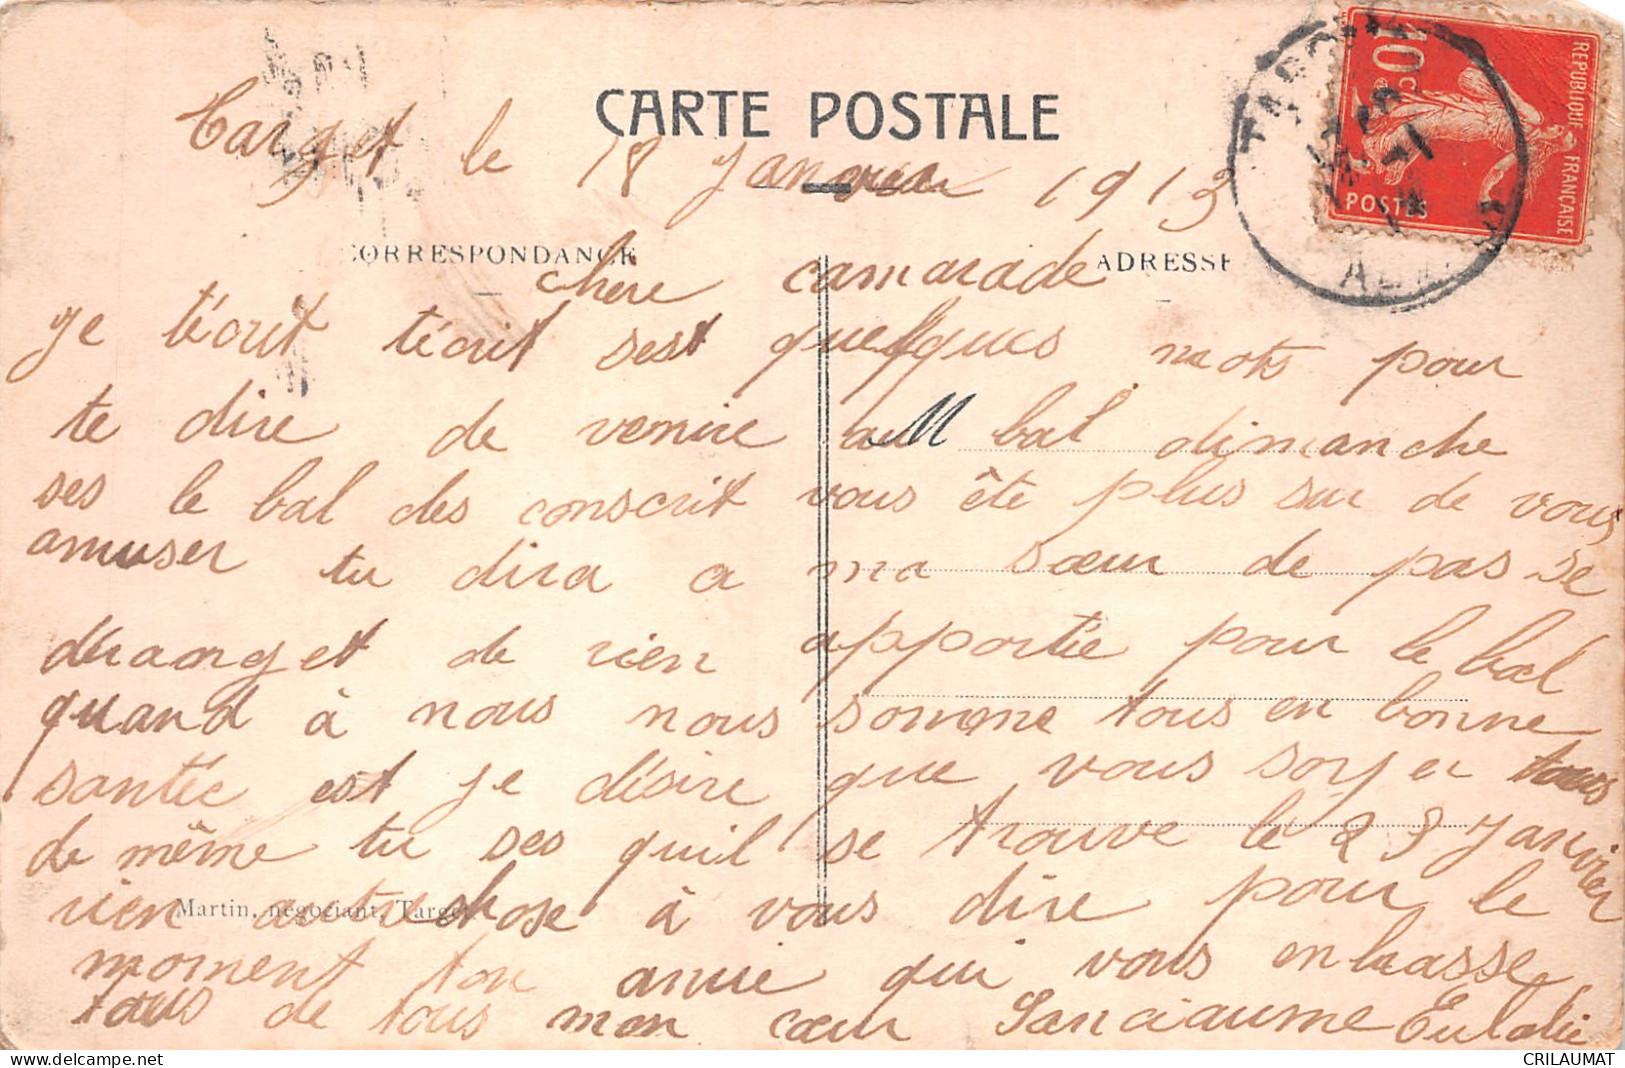 CARTE POSTALE
Target le 18 Janvier 1913
CORRESPONDANCE
ADRESSE
10c
REPUBLIQUE FRANÇAISE
POSTES
chère camarade
je técrit técrit sest quelques mots pour
te dire de venire au bal dimanche
ses le bal des conscrit vous ête plus sur de vous
amuser tu dira a ma sœur de pas se
déranget de rien apportée pour le bal
quand à nous nous somme tous en bonne
santée est je désire que vous soyer tous
de même tu ses quil se trouve le 23 Janvier
rien autre chose à vous dire pour le
Martin, négociant, Target
moment ton amie qui vous enbrasse
tous de tous mon cœur Sanciaume Eulalie
CRILAUMAT